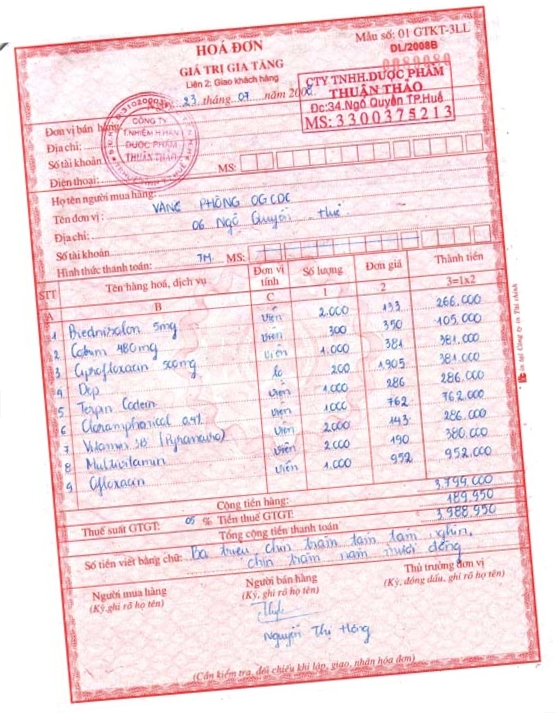 HOÁ ĐƠN
Mẫu số: 01 GTKT-3LL
GIÁ TRỊ GIA TĂNG
DL/2008B
Liên 2: Giao khách hàng
0080080
23 tháng 07 năm 200
CTY TNHH.DƯỢC PHẨM
THUẬN THẢO
Đc:34.Ngô Quyền TP.Huế
MS: 3300375213
CÔNG TY
T.NHIỆM H.HẠN
DƯỢC PHẨM
THUẬN THẢO
Đơn vị bán hàng
Địa chỉ:
Số tài khoản
Điện thoại: MS:
Họ tên người mua hàng:
Tên đơn vị: VĂNG PHÒNG OGCDC
Địa chỉ: 06 Ngô Quyền Huế
Số tài khoản
Hình thức thanh toán: TM MS:
STT Tên hàng hoá, dịch vụ Đơn vị tính Số lượng Đơn giá Thành tiền
A B C 1 2 3=1x2
1 Prednisolon 5mg 2.000 133 266.000
2 Cotrim 480mg viên 300 350 105.000
3 Ciprofloxacin 500mg viên 1.000 381 381.000
4 Dep lo 200 1.905 381.000
5 Terpin Codein viên 1.000 286 286.000
6 Cloramphenical 0,4% 1000 762 762.000
7 Vitamin 3B viên 2000 143 286.000
8 Multivitamin viên 2.000 190 380.000
9 Ofloxacin viên 1.000 952 952.000
Cộng tiền hàng: 3.799.000
Thuế suất GTGT: 05 % Tiền thuế GTGT: 189.950
Tổng cộng tiền thanh toán 3.988.950
Số tiền viết bằng chữ: Ba triệu, chín trăm tám tám nghìn,
chín trăm năm mươi đồng
Người mua hàng Người bán hàng Thủ trưởng đơn vị
(Ký, ghi rõ họ tên) (Ký, ghi rõ họ tên) (Ký, đóng dấu, ghi rõ họ tên)
Nguyễn Thị Hồng
(Cần kiểm tra, đối chiếu khi lập, giao, nhận hóa đơn)